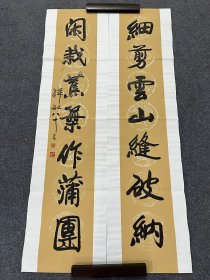 細剪雲山縫破納
閑裁蕉葉作蒲團